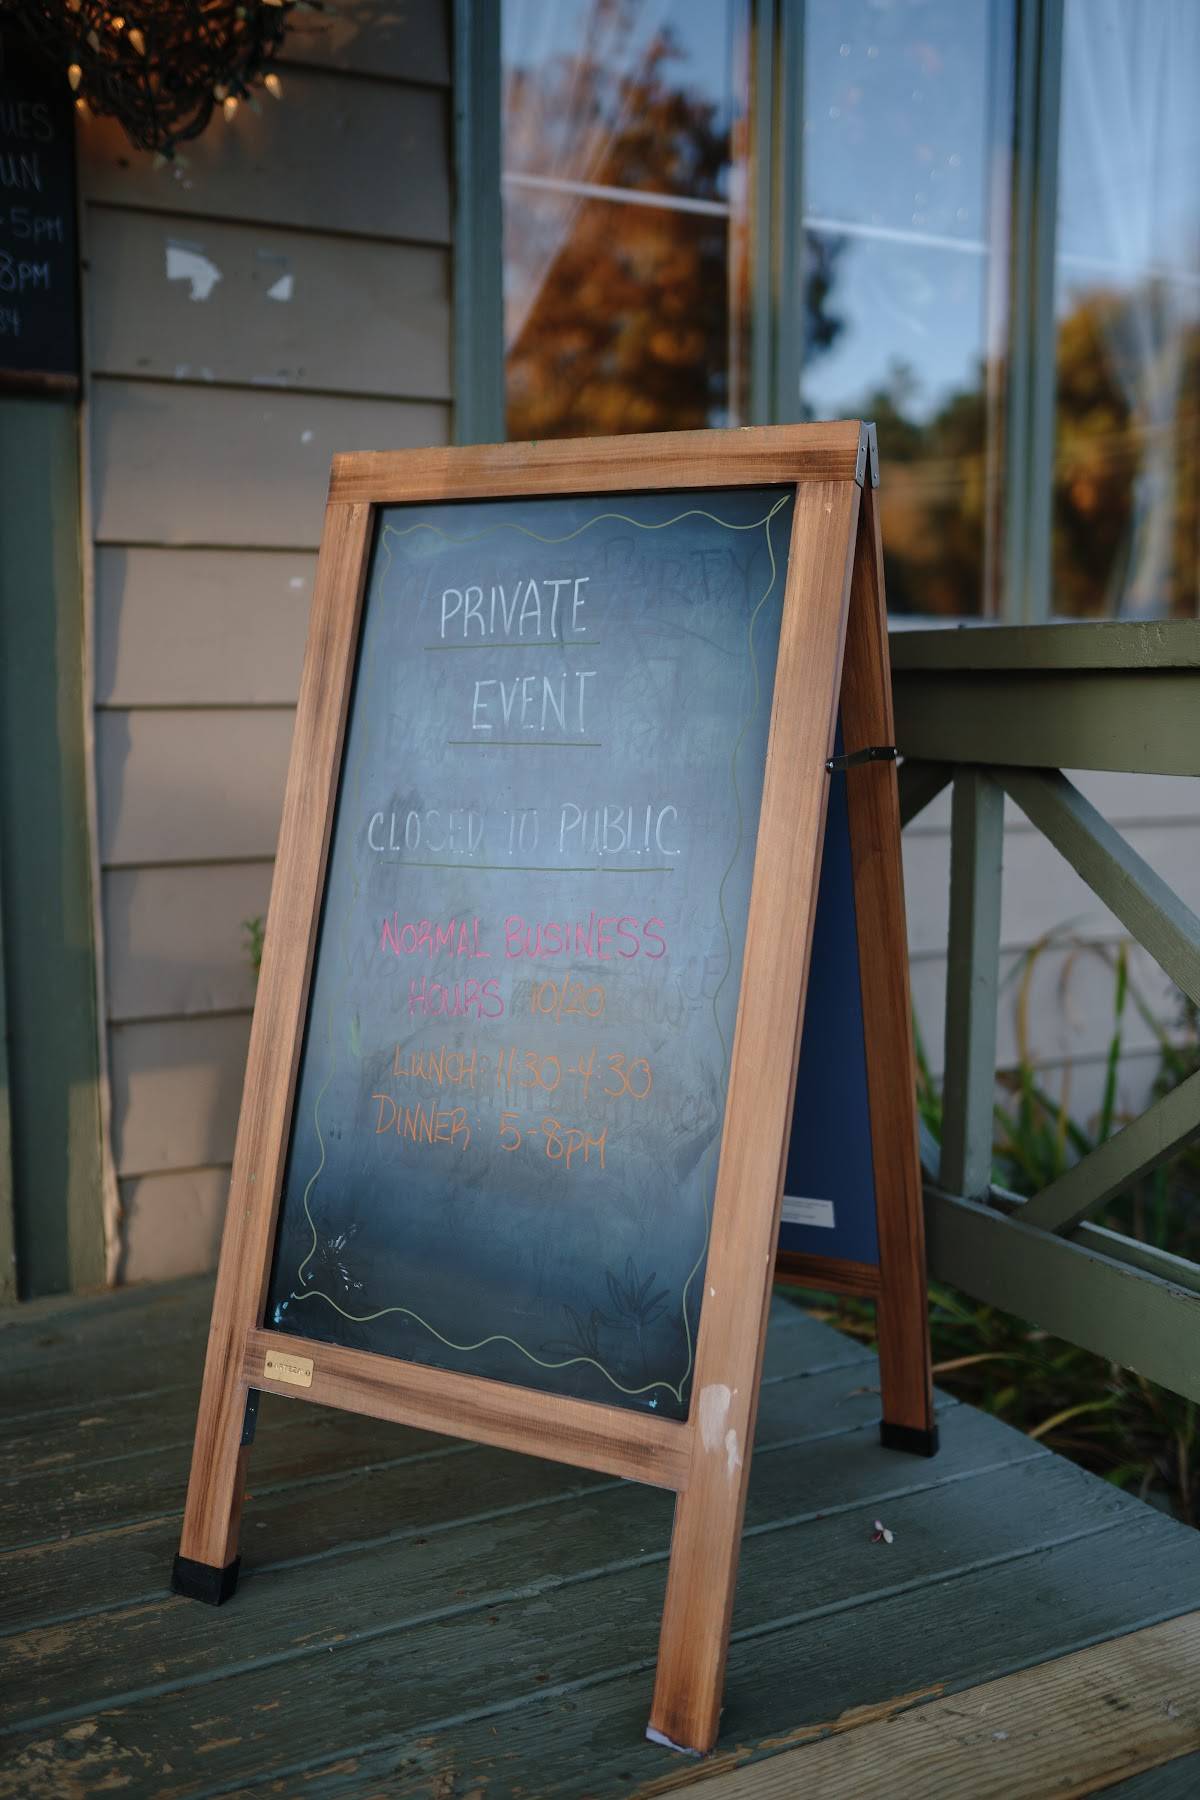 UES
UN
- 5PM
8PM
34
PARTY
PRIVATE
EVENT
CLOSED TO PUBLIC
NORMAL BUSINESS
HOURS 10/20
LUNCH: 11:30-4:30
DINNER: 5-8PM
ARTEZA